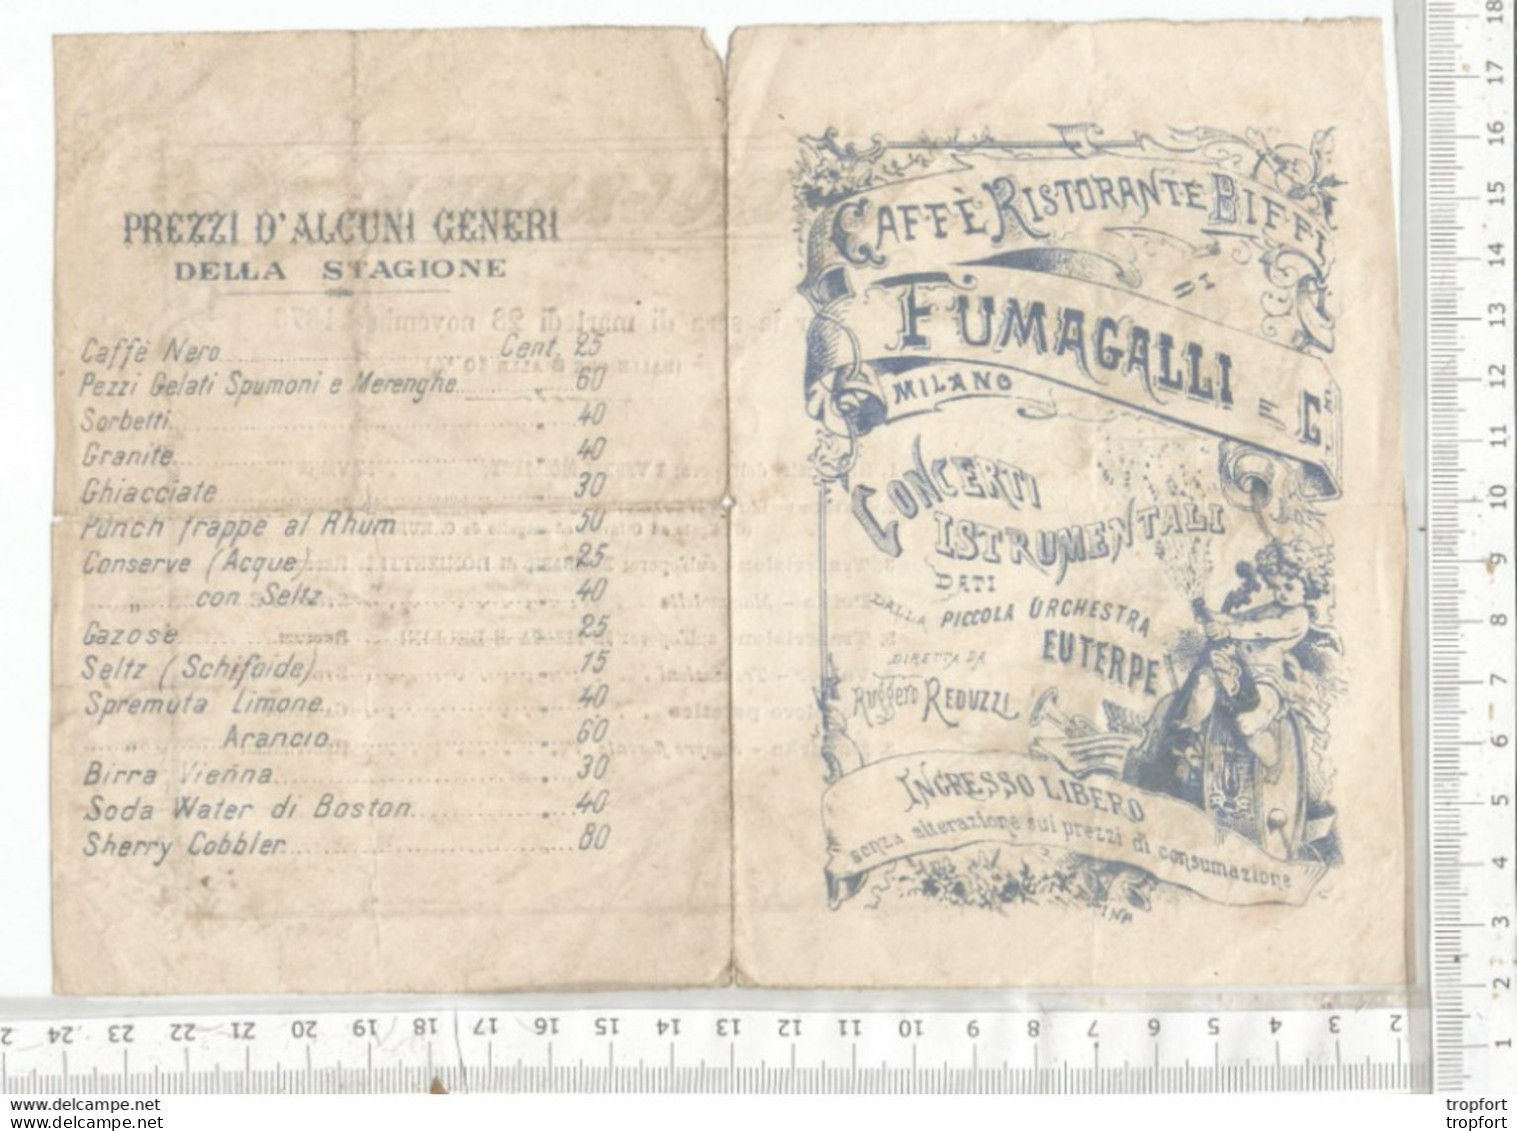 PREZZI D'ALCUNI GENERI
DELLA STAGIONE
Caffè Nero Cent. 25
Pezzi Gelati Spumoni e Merenghe 60
Sorbetti 40
Granite 40
Ghiacciate 30
Punch frappe al Rhum 50
Conserve (Acque) 25
„ con Seltz 40
Gazose 25
Seltz (Schifoide) 15
Spremuta Limone 40
„ Arancio 60
Birra Vienna 30
Soda Water di Boston 40
Sherry Cobbler 80
CAFFÈ RISTORANTE BIFFI
DI
FUMAGALLI E C.
MILANO
CONCERTI
ISTRUMENTALI
DATI
DALLA PICCOLA ORCHESTRA
EUTERPE
DIRETTA DA
Ruggero REDUZZI
INGRESSO LIBERO
senza alterazione sui prezzi di consumazione
tropfort
tropfort
tropfort
tropfort